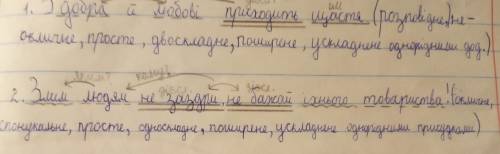 1. З добра й любові приходить щастя (розповідне, не-
окличне, просте, двоскладне, поширене, ускладнене однорідними дод.)
яким? кому?
2. Злим людям не заздри, не бажай їхнього товариства! (окличне,
спонукальне, просте, односкладне, поширене, ускладнене однорідними присудками)